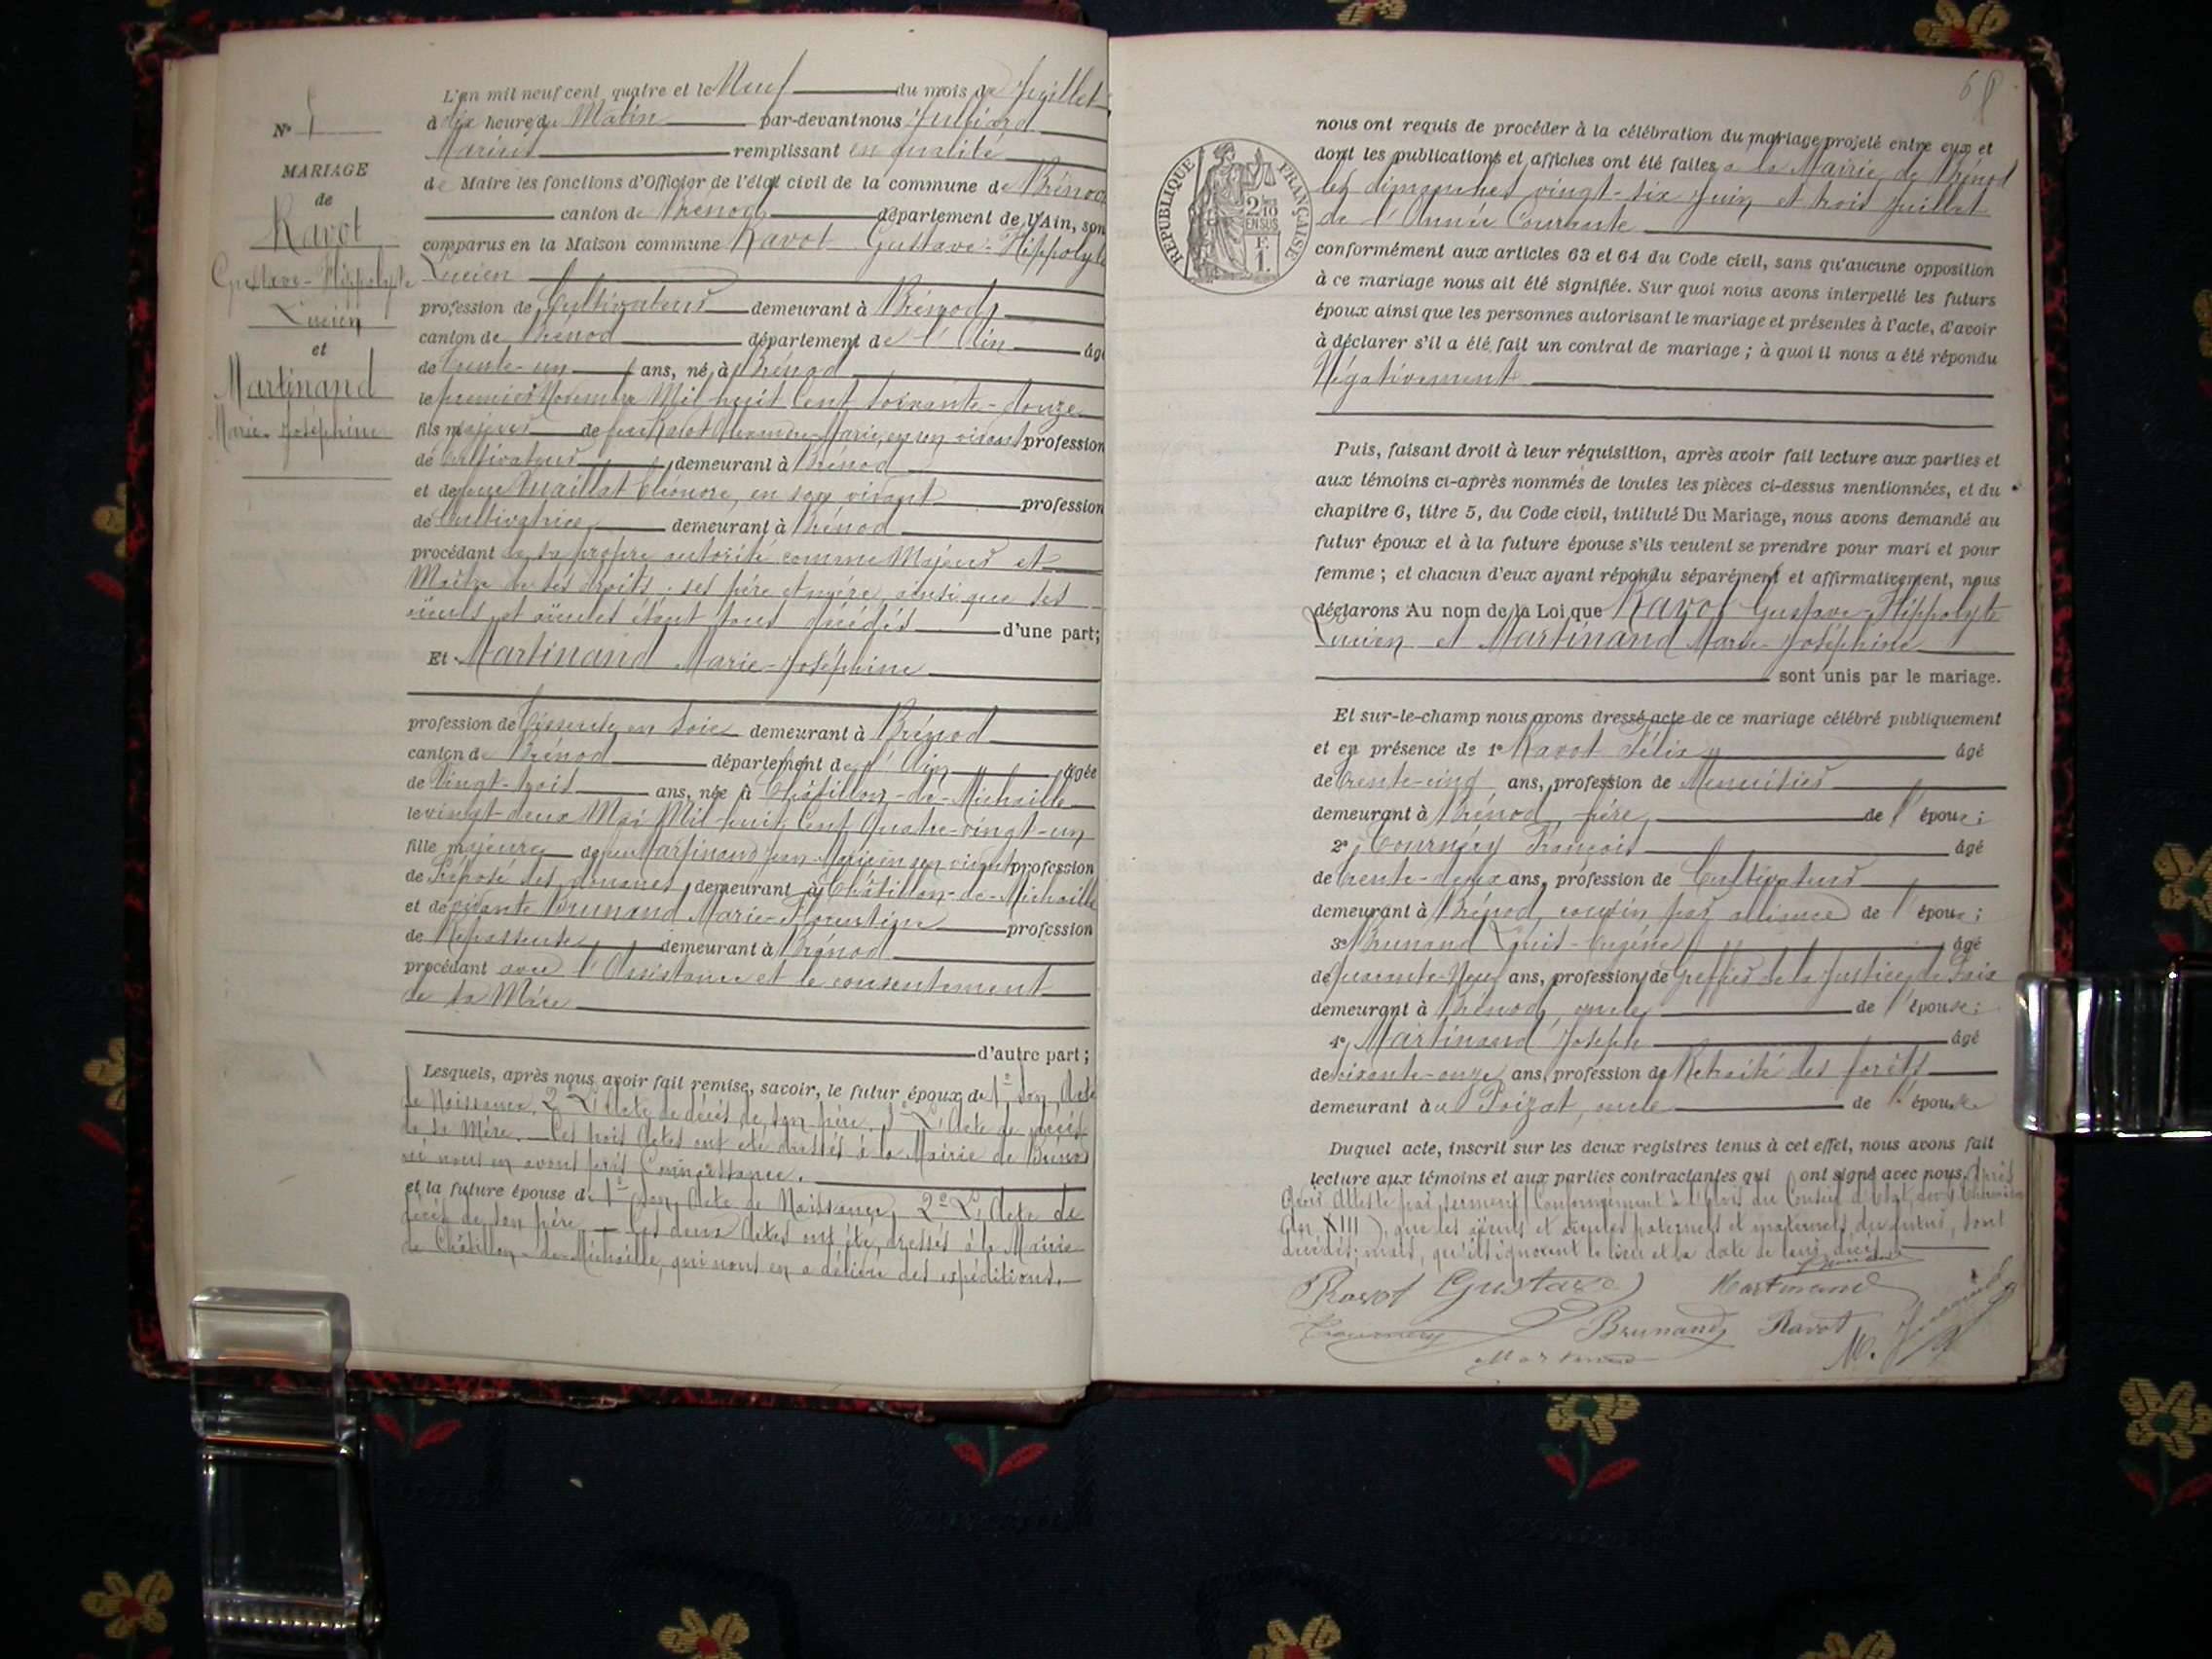 L'an mil neuf cent quatre et le Neuf du mois de Juillet
N°
à dix heures du Matin par-devant nous Julliard
Marius remplissant en qualité
MARIAGE
de Maire les fonctions d'Officier de l'état civil de la commune de Brénod
de
canton de Brénod département de l'Ain, son
Ravot
comparus en la Maison commune Ravot Gustave-Hippolyte
Gustave-Hippolyte
Lucien
Lucien
profession de Cultivateur demeurant à Brénod
et
canton de Brénod département de l'Ain âgé
Martinand
de trente-un ans, né à Brénod
le premier Novembre Mil huit Cent soixante-douze
Marie-Joséphine
fils majeur de feu Ravot Alexandre-Marie, en son vivant profession
de Cultivateur demeurant à Brénod
et de feue Maillat Eléonore, en son vivant profession
de Cultivatrice demeurant à Brénod
procédant de sa propre autorité comme Majeur et
Maître de ses droits ; ses père et mère, ainsi que ses
aïeuls et aïeules étant tous décédés d'une part;
Et Martinand Marie-Joséphine
profession de Tisseuse en Soie demeurant à Brénod
canton de Brénod département de l'Ain âgée
de Vingt-trois ans, née à Châtillon-de-Michaille
le vingt-deux Mai Mil huit Cent Quatre-vingt-un
fille majeure de feu Martinand Jean-Marie en son vivant profession
de Préposé des douanes demeurant à Châtillon-de-Michaille
et de vivante Brunand Marie-Florentine profession
de Repasseuse demeurant à Brénod
procédant avec l'Assistance et le consentement
de sa Mère
d'autre part ;
Lesquels, après nous avoir fait remise, savoir, le futur époux de 1° Son Acte
de Naissance, 2° L'Acte de décès de son père. 3° L'Acte de décès
de sa Mère. Ces trois Actes ont été dressés à la Mairie de Brénod
où nous en avons pris Connaissance.
et la future épouse de 1° Son Acte de Naissance, 2° L'Acte de
décès de son père — Ces deux Actes ont été dressés à la Mairie
de Châtillon-de-Michaille, qui nous en a délivré des expéditions.
68
nous ont requis de procéder à la célébration du mariage projeté entre eux et
dont les publications et affiches ont été faites à la Mairie de Brénod
les dimanches vingt-six Juin et trois Juillet
de l'Année Courante
RÉPUBLIQUE FRANÇAISE
2/10
EN SUS
F.
1.
conformément aux articles 63 et 64 du Code civil, sans qu'aucune opposition
à ce mariage nous ait été signifiée. Sur quoi nous avons interpellé les futurs
époux ainsi que les personnes autorisant le mariage et présentes à l'acte, d'avoir
à déclarer s'il a été fait un contrat de mariage ; à quoi il nous a été répondu
Négativement
Puis, faisant droit à leur réquisition, après avoir fait lecture aux parties et
aux témoins ci-après nommés de toutes les pièces ci-dessus mentionnées, et du
chapitre 6, titre 5, du Code civil, intitulé Du Mariage, nous avons demandé au
futur époux et à la future épouse s'ils veulent se prendre pour mari et pour
femme ; et chacun d'eux ayant répondu séparément et affirmativement, nous
déclarons Au nom de la Loi que Ravot Gustave-Hippolyte
Lucien et Martinand Marie-Joséphine
sont unis par le mariage.
Et sur-le-champ nous avons dressé acte de ce mariage célébré publiquement
et en présence de 1° Ravot Félix âgé
de trente-cinq ans, profession de Menuisier
demeurant à Brénod, frère de l'époux ;
2° Tournéry François âgé
de trente-deux ans, profession de Cultivateur
demeurant à Brénod, cousin par alliance de l'époux ;
3° Brunand Louis-Eugène âgé
de quarante-Neuf ans, profession de Greffier de la Justice de Paix
demeurant à Brénod, oncle de l'épouse ;
4° Martinand Joseph âgé
de soixante-onze ans, profession de Retraité des forêts
demeurant au Poizat, oncle de l'épouse
Duquel acte, inscrit sur les deux registres tenus à cet effet, nous avons fait
lecture aux témoins et aux parties contractantes qui ont signé avec nous, Après
Avoir Attesté par serment (Conformément à l'Avis du Conseil d'État, du 4 Thermidor
An XIII), que les aïeuls et aïeules paternels et maternels du futur, sont
décédés ; mais, qu'ils ignorent le lieu et la date de leur décès
Ravot Gustave Martinand
Tournéry Brunand Ravot
Martinand M. Julliard